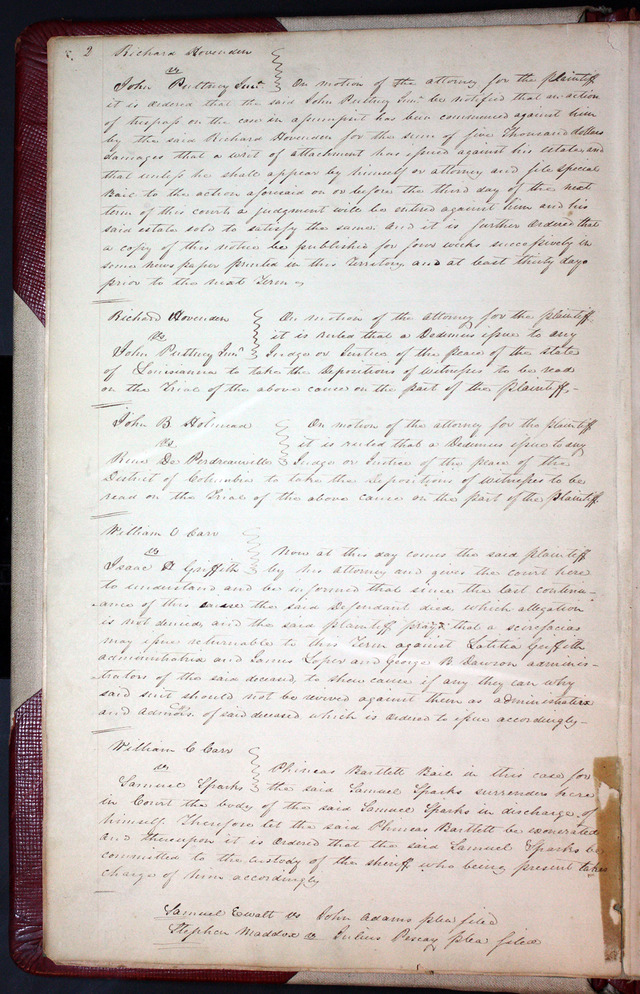 2
Richard Hovenden
vs
John Puthuy Junr. On motion of the attorney for the plaintiff
it is ordered that the said John Puthuy Junr. be notified that an action
of trespass on the case in assumpsit has been commenced against him
by the said Richard Hovenden for the sum of five Thousand dollars
damages that a writ of attachment has issued against his estate and
that unless he shall appear by himself or attorney and file special
Bail to the action aforesaid on or before the third day of the next
term of this court, a judgment will be entered against him and his
said estate sold to satisfy the same. And it is further Ordered that
a copy of this notice be published for four weeks successively in
some news paper printed in this Territory and at least thirty days
prior to the next Term
Richard Hovenden On motion of the attorney for the plaintiff
vs it is ruled that a Dedimus issue to any
John Puthuy Junr. Judge or Justice of the peace of the state
of Louisianna to take the Depositions of witnesses to be read
on the Trial of the above cause on the part of the Plaintiff.
John B Holmead On motion of the attorney for the plaintiff
vs it is ruled that a Dedimus issue to any
Rene De Perdreauville Judge or Justice of the peace of the
District of Columbia to take the depositions of witnesses to be
read on the Trial of the above cause on the part of the Plaintiff
William C Carr
vs Now at this day comes the said plaintiff
Isaac W Griffith by his attorney and gives the court here
to understand and be informed that since the last continu-
ance of this cause the said Defendant died, which allegation
is not denied, and the said plaintiff prays that a scirefacias
may issue returnable to this Term against Latitia Griffith
administratrix and James Loper and George B Dawson adminis-
trators of the said deceasd, to show cause if any they can why
said suit should not be revived against them as administratrix
and admors. of said deceased which is ordered to issue accordingly
William C Carr
vs Phineas Bartlett Bail in this case for
Samuel Sparks the said Samuel Sparks surrenders here
in Court the body of the said Samuel Sparks in discharge of
himself. Therefore let the said Phineas Bartlett be exonerated
and thereupon it is Ordered that the said Samuel Sparks be
committed to the custody of the sheriff who being present takes
charge of him accordingly
Samuel Ewalt vs John Adams plea filed
Stephen Maddox vs Julius Pescay plea filed